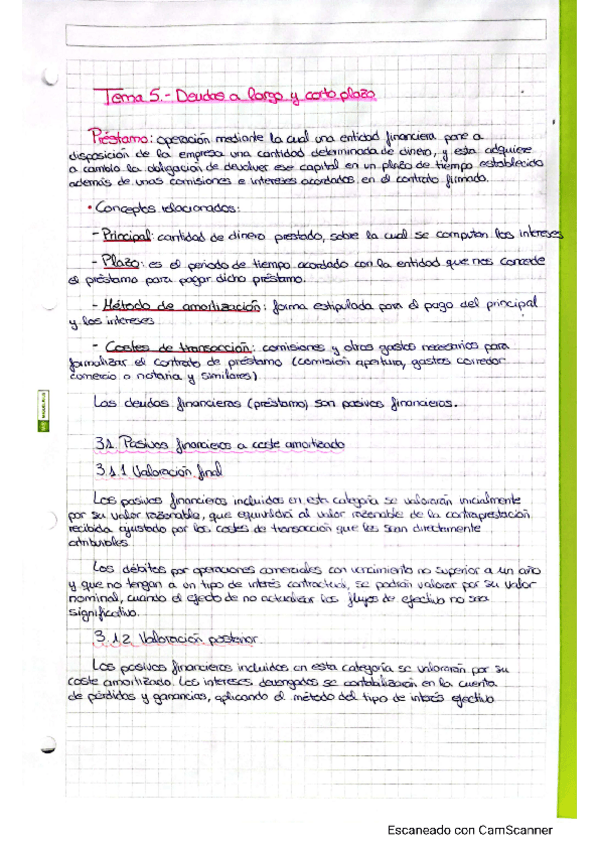 Tema 5.- Deudas a largo y corto plazo
Préstamo: operación mediante la cual una entidad financiera pone a
disposición de la empresa una cantidad determinada de dinero, y esta adquiere
a cambio la obligación de devolver ese capital en un plazo de tiempo establecido
además de unas comisiones e intereses acordados en el contrato firmado.
• Conceptos relacionados:
- Principal: cantidad de dinero prestado, sobre la cual se computan los intereses
- Plazo: es el periodo de tiempo acordado con la entidad que nos concede
el préstamo para pagar dicho préstamo.
- Método de amortización: forma estipulada para el pago del principal
y los intereses
- Costes de transacción: comisiones y otros gastos necesarios para
formalizar el contrato de préstamo (comisión apertura, gastos corredor
comercio o notaria y similares)
Las deudas financieras (préstamo) son pasivos financieros.
3.1. Pasivos financieros a coste amortizado
3.1.1 Valoración final
Los pasivos financieros incluidos en esta categoría se valorarán inicialmente
por su valor razonable, que equivaldrá al valor razonable de la contraprestación
recibida ajustado por los costes de transacción que les sean directamente
atribuibles
Los débitos por operaciones comerciales con vencimiento no superior a un año
y que no tengan a un tipo de interés contractual, se podrán valorar por su valor
nominal, cuando el efecto de no actualizar los flujos de efectivo no sea
significativo.
3.1.2 Valoración posterior
Los pasivos financieros incluidos en esta categoría se valorarán por su
coste amortizado. Los intereses devengados se contabilizarán en la cuenta
de pérdidas y ganancias, aplicando el método del tipo de interés efectivo
Escaneado con CamScanner